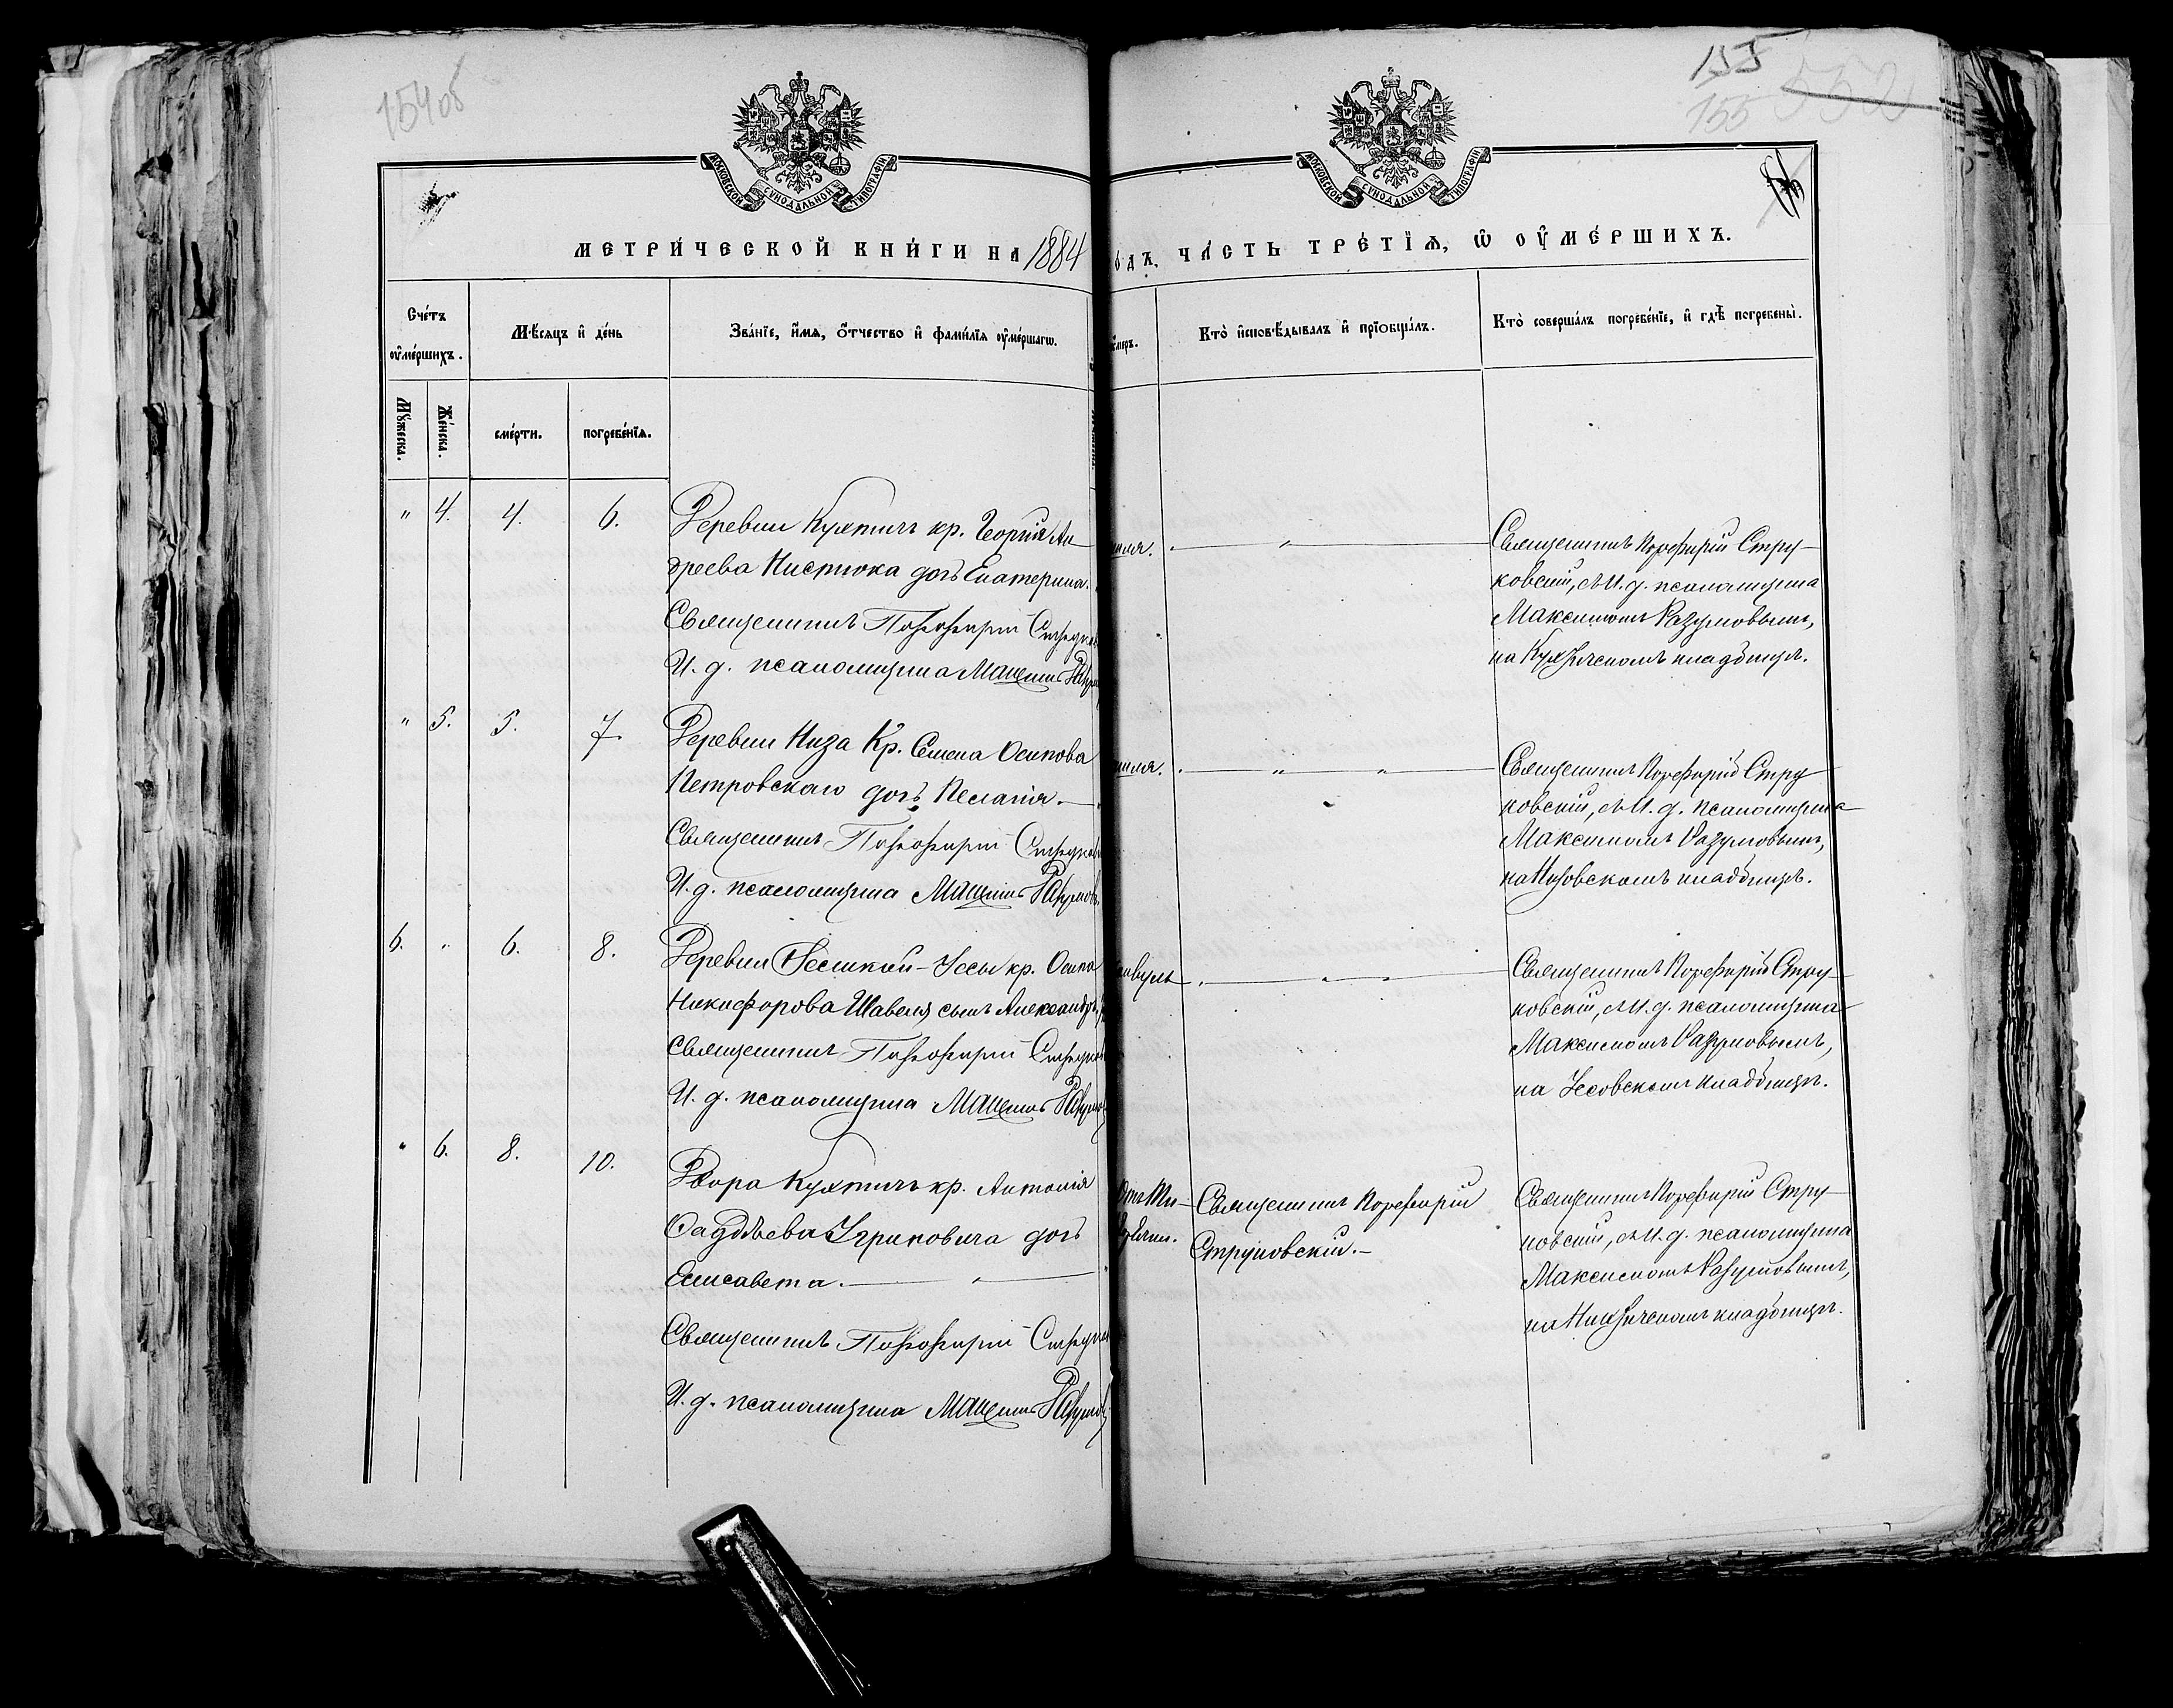 154об
155
155 552
МОСКОВСКОЙ СѴНОДАЛЬНОЙ ТИПОГРАФІИ
МОСКОВСКОЙ СѴНОДАЛЬНОЙ ТИПОГРАФІИ
МЕТРИ́ЧЕСКОЙ КНИ́ГИ НА 1884
ОДЪ, ЧА́СТЬ ТРЕ́ТІѦ, Ѡ҆ ОУ҆МЕ́РШИХЪ.
Сче́тъ оу҆ме́ршихъ.
Мꙋ́жеска.
Же́нска.
Мѣ́сяцъ и҆ де́нь
сме́рти.
погребе́нїѧ.
Зва́нїе, и҆́мѧ, о҆́тчество и҆ фами́лїѧ оу҆ме́ршагѡ.
ꙋмеръ.
Кто̀ и҆сповѣ́дывалъ и҆ прїѡбща́лъ.
Кто̀ соверша́лъ погребе́нїе, и҆ гдѣ̀ погребены̀.
" 4. 4. 6.
Деревни Кухтичъ кр. Георгія Ан-
дреева Нистюка дочь Екатерина.
Священникъ Порфирій
И. д. псаломщика Максимъ
.— " —
Священникъ Порфирій Стру-
ковскій, съ И. д. псаломщика
Максимомъ Разумовымъ,
на Кухтичскомъ кладбищѣ.
" 5. 5. 7.
Деревни Низа Кр. Семена Осипова
Петровскаго дочь Пелагія.—
Священникъ Порфирій
И. д. псаломщика Максимъ Разумовъ
.— " " —
Священникъ Порфирій Стру-
ковскій, съ И. д. псаломщика
Максимомъ Разумовымъ,
на Низовскомъ кладбищѣ.
6. " 6. 8.
Деревни Уссы кр. Осипа
Никифорова Шавеля сынъ Александръ
Священникъ Порфирій
И. д. псаломщика Максимъ
.— " " —
Священникъ Порфирій Стру-
ковскій, съ И. д. псаломщика
Максимомъ Разумовымъ,
на Уссовскомъ кладбищѣ.
" 6. 8. 10.
Двора Кухтичъ кр. Антонія
Фаддѣева Угриновича дочь
Елисавета.— " —
Священникъ Порфирій
И. д. псаломщика Максимъ
Священникъ Порфирій
Струковскій.—
Священникъ Порфирій Стру-
ковскій, съ И. д. псаломщика
Максимомъ Разумовымъ,
кладбищѣ.